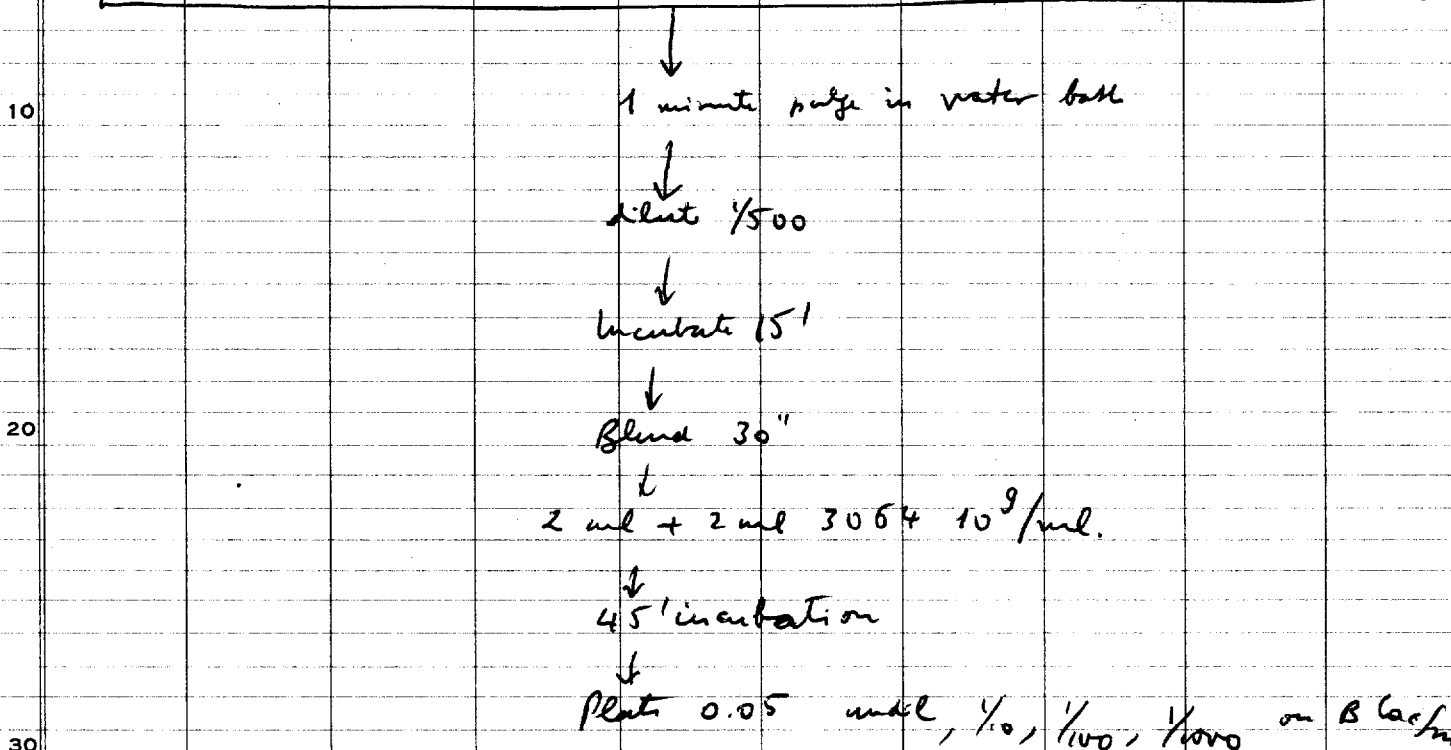 10
1 minute pulse in water bath
dilute 1/500
Incubate 15'
20
Blend 30"
2 ml + 2 ml 3064 10⁹/ml.
45' incubation
Plate 0.05 undil, 1/10, 1/100, 1/1000 on B Lac/
30